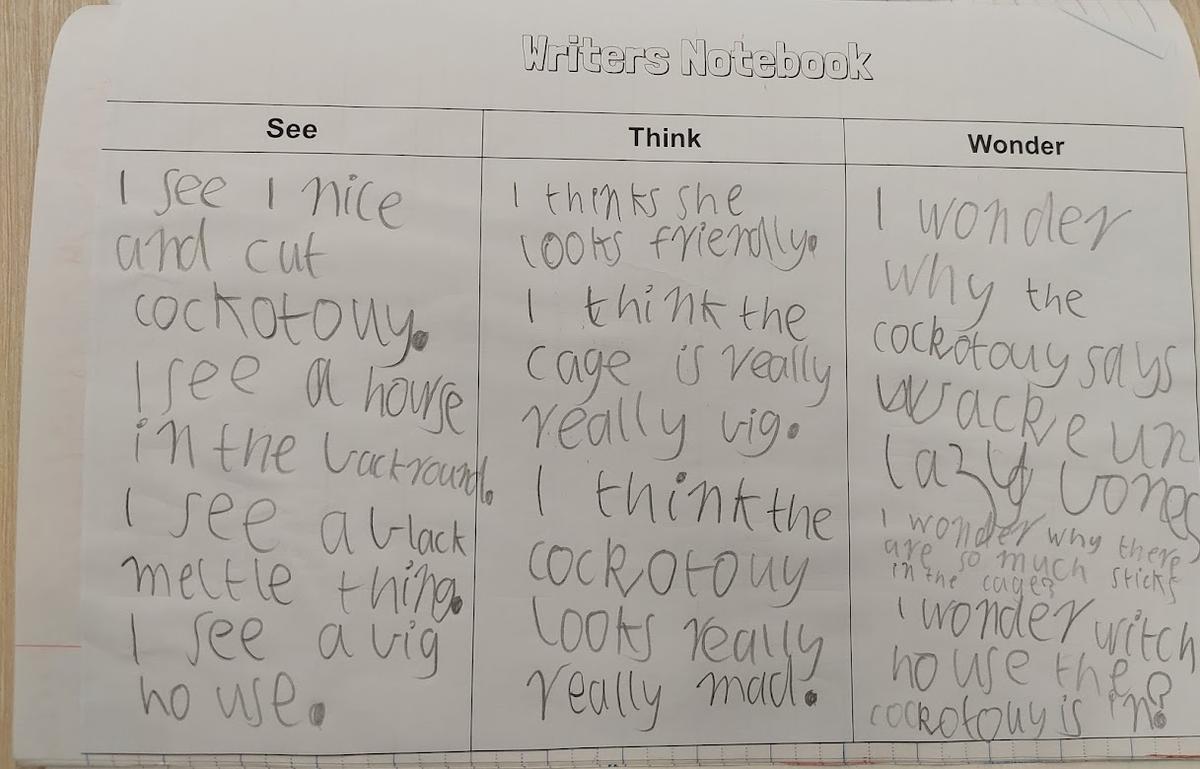 Writers Notebook
See
I see I nice
and cut
cockotouy.
I see a hourse
in the backround.
I see a black
meltle thing.
I see a big
house.
Think
I thinks she
looks friendly.
I think the
cage is really
really big.
I think the
cockotouy
looks really
really mad.
Wonder
I wonder
why the
cockotouy says
wacke up
lazy bones
I wonder why there
are so much sticks
in the cage?
I wonder witch
house the
cockotouy is in?